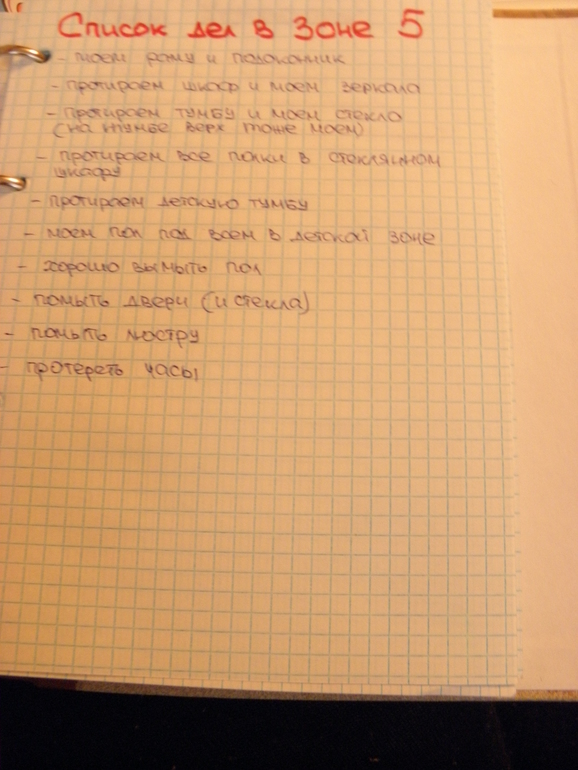 Список дел в Зоне 5
- моем раму и подоконник
- протираем шкаф и моем зеркала
- протираем тумбу и моем стекла
(на тумбе верх тоже моем)
- протираем все полки в стеклянном
шкафу
- протираем детскую тумбу
- моем пол под всем в детской зоне
- хорошо вымыть пол
- помыть двери (и стекла)
- помыть люстру
- протереть часы